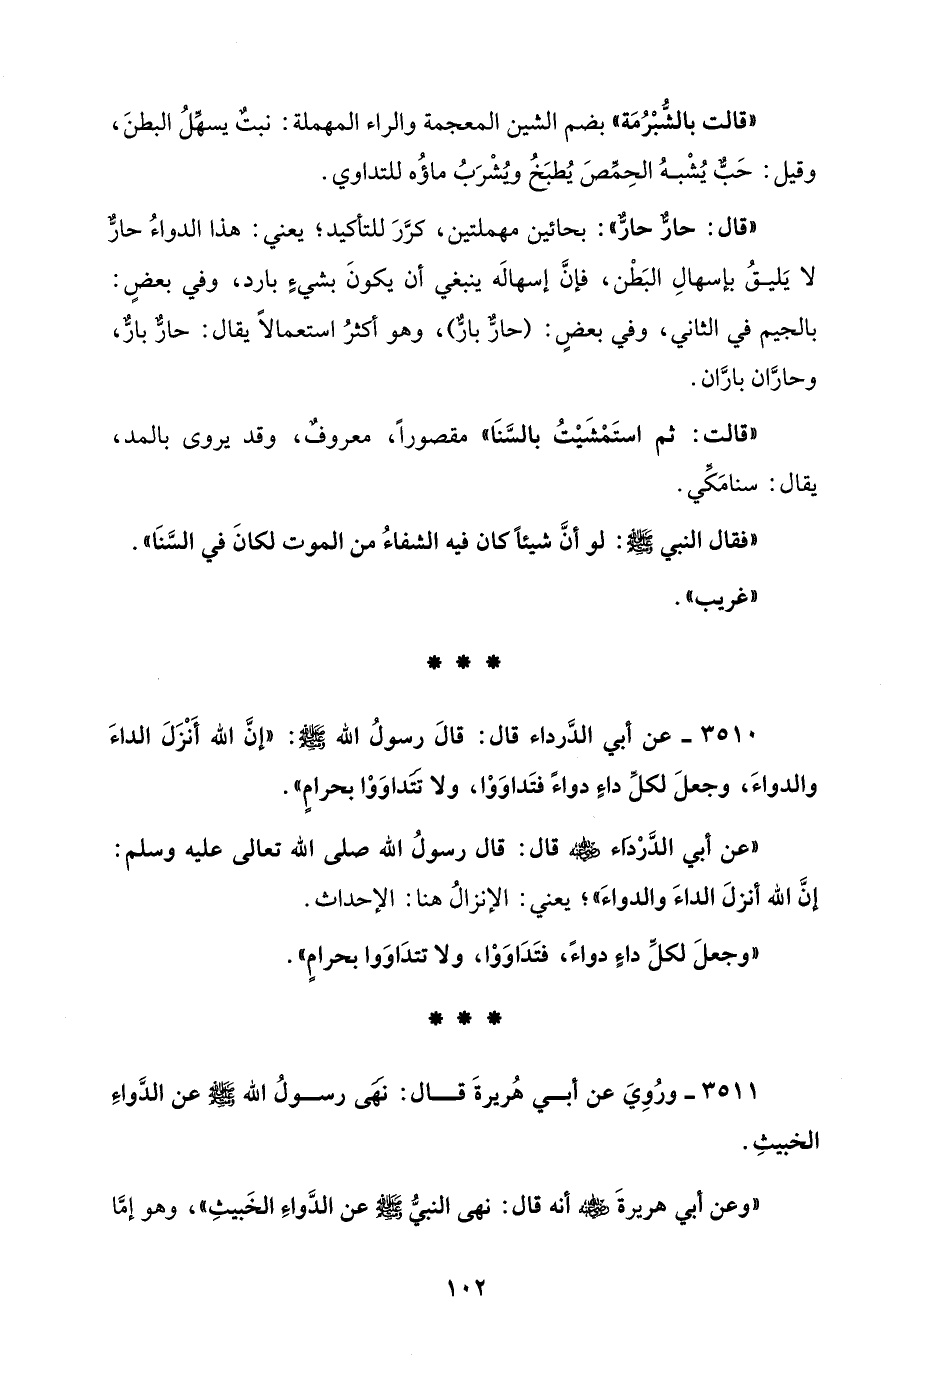 «قالت بالشُّبْرُمَة» بضم الشين المعجمة والراء المهملة: نبتٌ يسهِّلُ البطنَ،
وقيل: حَبٌّ يُشْبـهُ الحِمِّصَ يُطبَخُ ويُشْرَبُ ماؤُه للتداوي.
«قال: حارٌّ حارٌّ»: بحائين مهملتين، كرَّرَ للتأكيد؛ يعني: هذا الدواءُ حارٌّ
لا يَليـقُ بإسهالِ البَطْن، فإنَّ إسهالَه ينبغي أن يكونَ بشيءٍ بارد، وفي بعضٍ:
بالجيم في الثاني، وفي بعضٍ: (حارٌّ بارٌّ)، وهو أكثرُ استعمالاً يقال: حارٌّ بارٌّ،
وحارَّان بارَّان.
«قالت: ثم استَمْشَيْتُ بالسَّنَا» مقصوراً، معروفٌ، وقد يروى بالمد،
يقال: سنامَكِّي.
«فقال النبي ﷺ: لو أنَّ شيئاً كان فيه الشفاءُ من الموت لكانَ في السَّنَا».
«غريب».
* * *
٣٥١٠ ـ عن أبي الدَّرداء قال: قالَ رسولُ الله ﷺ: «إنَّ الله أَنْزَلَ الداءَ
والدواءَ، وجعلَ لكلِّ داءٍ دواءً فتَداوَوْا، ولا تتَداوَوْا بحرامٍ».
«عن أبي الدَّرْدَاء ﵁ قال: قال رسولُ الله صلى الله تعالى عليه وسلم:
إنَّ الله أنزلَ الداءَ والدواءَ»؛ يعني: الإنزالُ هنا: الإحداث.
«وجعلَ لكلِّ داءٍ دواءً، فتَدَاوَوْا، ولا تتدَاوَوا بحرامٍ».
* * *
٣٥١١ ـ ورُوِيَ عن أبــي هُريرةَ قــال: نهَى رســولُ الله ﷺ عن الدَّواءِ
الخبيثِ.
«وعن أبي هريرةَ ﵁ أنه قال: نهى النبيُّ ﷺ عن الدَّواءِ الخَبيثِ»، وهو إمَّا
١٠٢